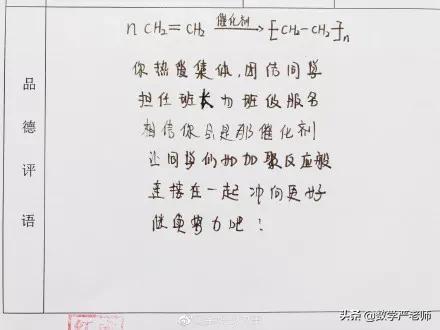 n CH₂=CH₂ 催化剂 [CH₂-CH₂]n
品德评语
你热爱集体，团结同学
担任班长为班级服务
相信你就是那催化剂
让同学们如加聚反应般
连接在一起 冲向更好
继续努力吧！
头条@数学严老师